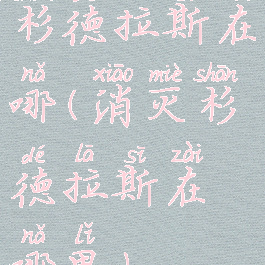 杉德拉斯在
nǎ xiāo miè shān
哪(消灭杉
dé lā sī zài
德拉斯在
nǎ lǐ
哪里)